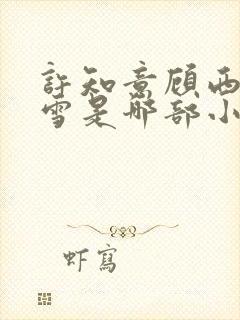 許知意顾西
雪是哪部小
虾寫